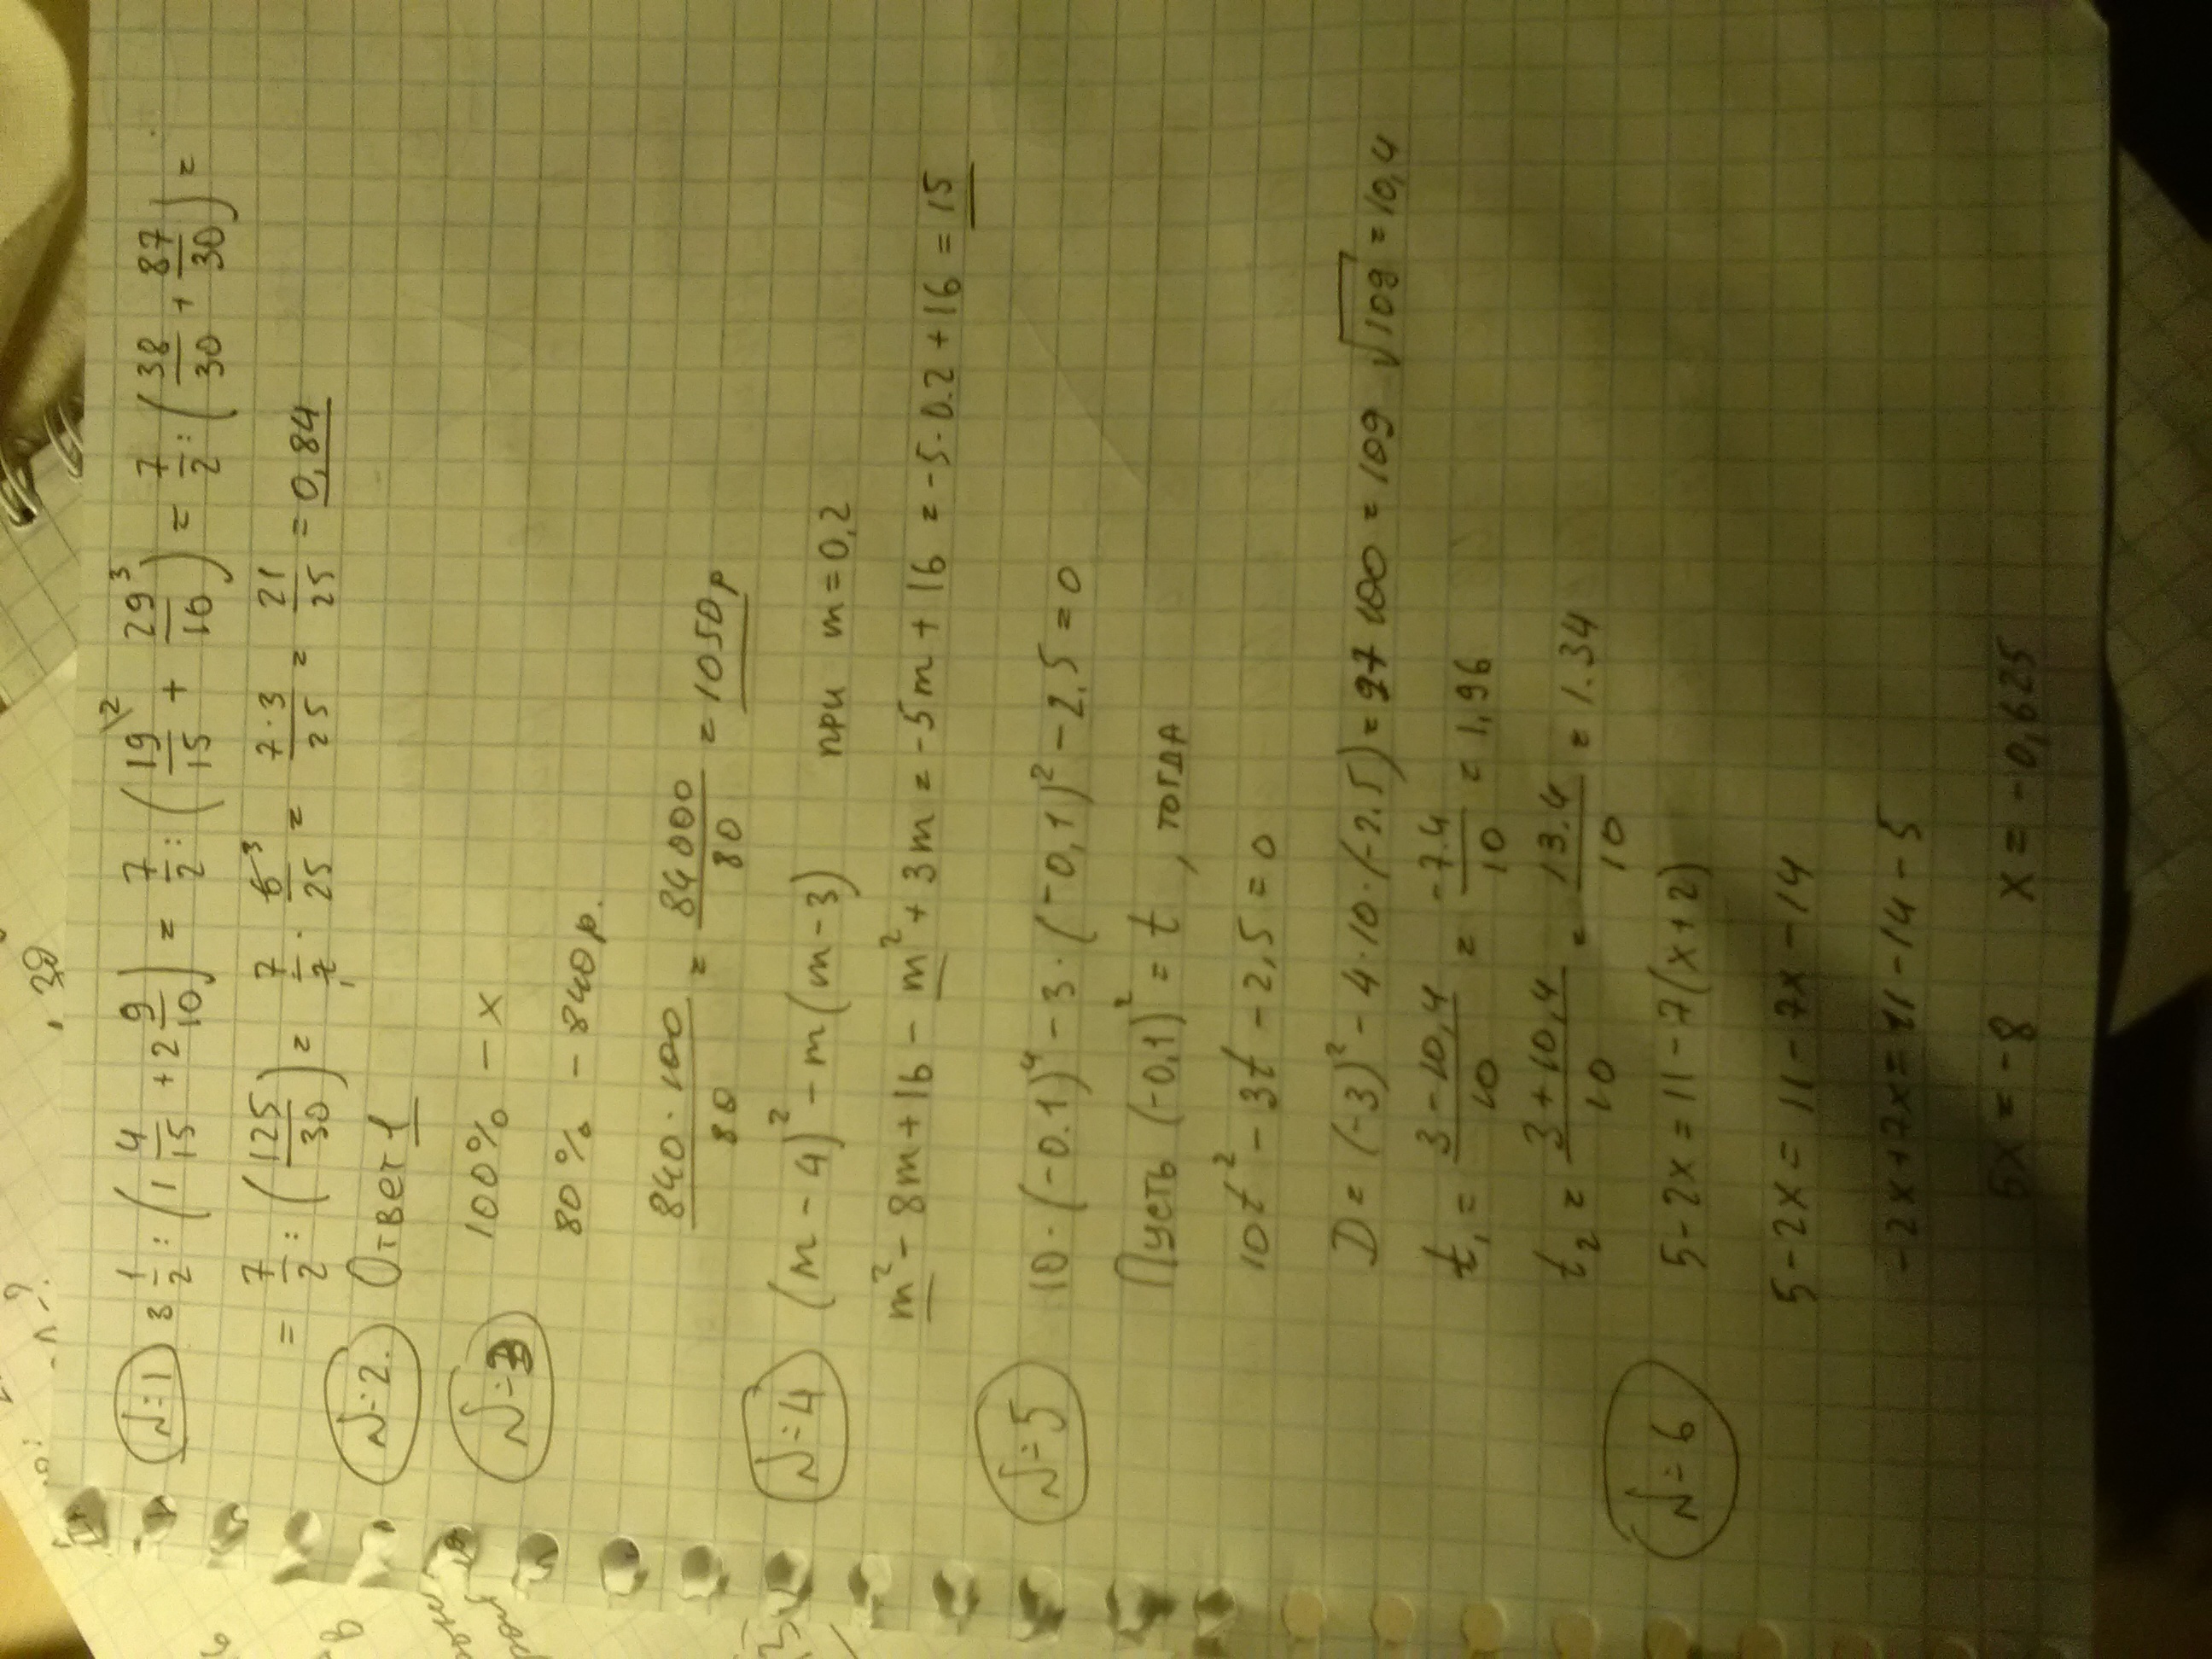 №1 3 1/2 : (1 4/15 + 2 9/10) = 7/2 : (19\2/15 + 29 3/10) = 7/2 : (38/30 + 87/30) =
= 7/2 : (125/30) = 7/1 · 6 3/25 = 7·3/25 = 21/25 = 0,84
№2. Ответ 1
№3 100% – x
80% – 840р.
8400·100/80 = 84000/80 = 1050р
№4 (m – 4)² – m(m – 3) при m = 0,2
m² – 8m + 16 – m² + 3m = -5m + 16 = -5·0.2 + 16 = 15
№5 10·(-0.1)⁴ – 3·(-0,1)² – 2.5 = 0
Пусть (-0,1)² = t, тогда
10t² – 3t – 2,5 = 0
D = (-3)² – 4·10·(-2.5) = 100 = 109 √109 = 10,4
t₁ = 3 – 10,4/10 = -7.4/10 = 1,96
t₂ = 3 + 10,4/10 = 13.4/10 = 1.34
№6 5 – 2x = 11 – 7(x + 2)
5 – 2x = 11 – 7x – 14
-2x + 7x = 11 – 14 – 5
5x = -8 x = -0,625